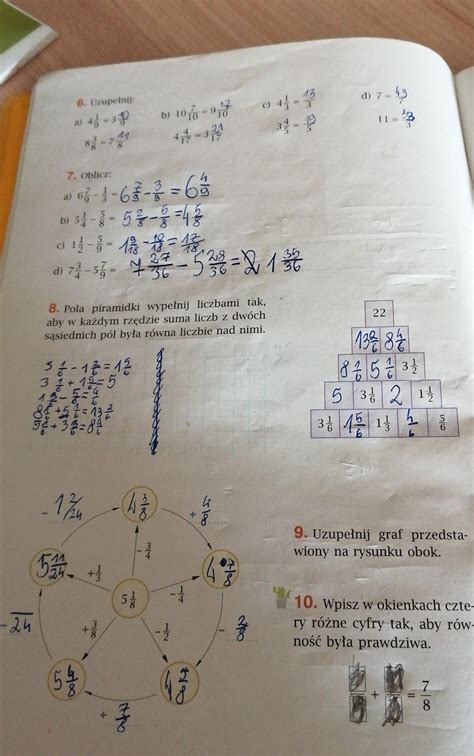 6. Uzupełnij:
a) 4 1/9 = 3 10/9 b) 10 7/10 = 9 17/10 c) 4 1/3 = 13/3 d) 7 = 49/7
8 3/8 = 7 11/8 4 4/17 = 3 21/17 3 4/5 = 19/5 11 = 33/3
7. Oblicz:
a) 6 7/9 − 1/3 = 6 7/9 − 3/9 = 6 4/9
b) 5 1/4 − 5/8 = 5 2/8 − 5/8 = 4 5/8
c) 1 1/2 − 5/9 = 1 9/18 − 10/18 = 17/18
d) 7 3/4 − 5 7/9 = 7 27/36 − 5 28/36 = 1 35/36
8. Pola piramidki wypełnij liczbami tak,
aby w każdym rzędzie suma liczb z dwóch
sąsiednich pól była równa liczbie nad nimi.
22
13 2/6 8 4/6
8 1/6 5 1/6 3 1/2
5 3 1/6 2 1 1/2
3 1/6 1 5/6 1 1/3 4/6 5/6
3 1/6 + 1 5/6 = 5
8 1/6 + 5 1/6 = 13 2/6
4 3/8
+ 4/8
− 1 2/24
5 11/24
+ 1/3
− 3/4
4 7/8
− 1/4
5 1/8
+ 3/8
− 1/2
− 2/8
5 4/8
+ 7/8
9. Uzupełnij graf przedsta-
wiony na rysunku obok.
10. Wpisz w okienkach czte-
ry różne cyfry tak, aby rów-
ność była prawdziwa.
+ = 7/8